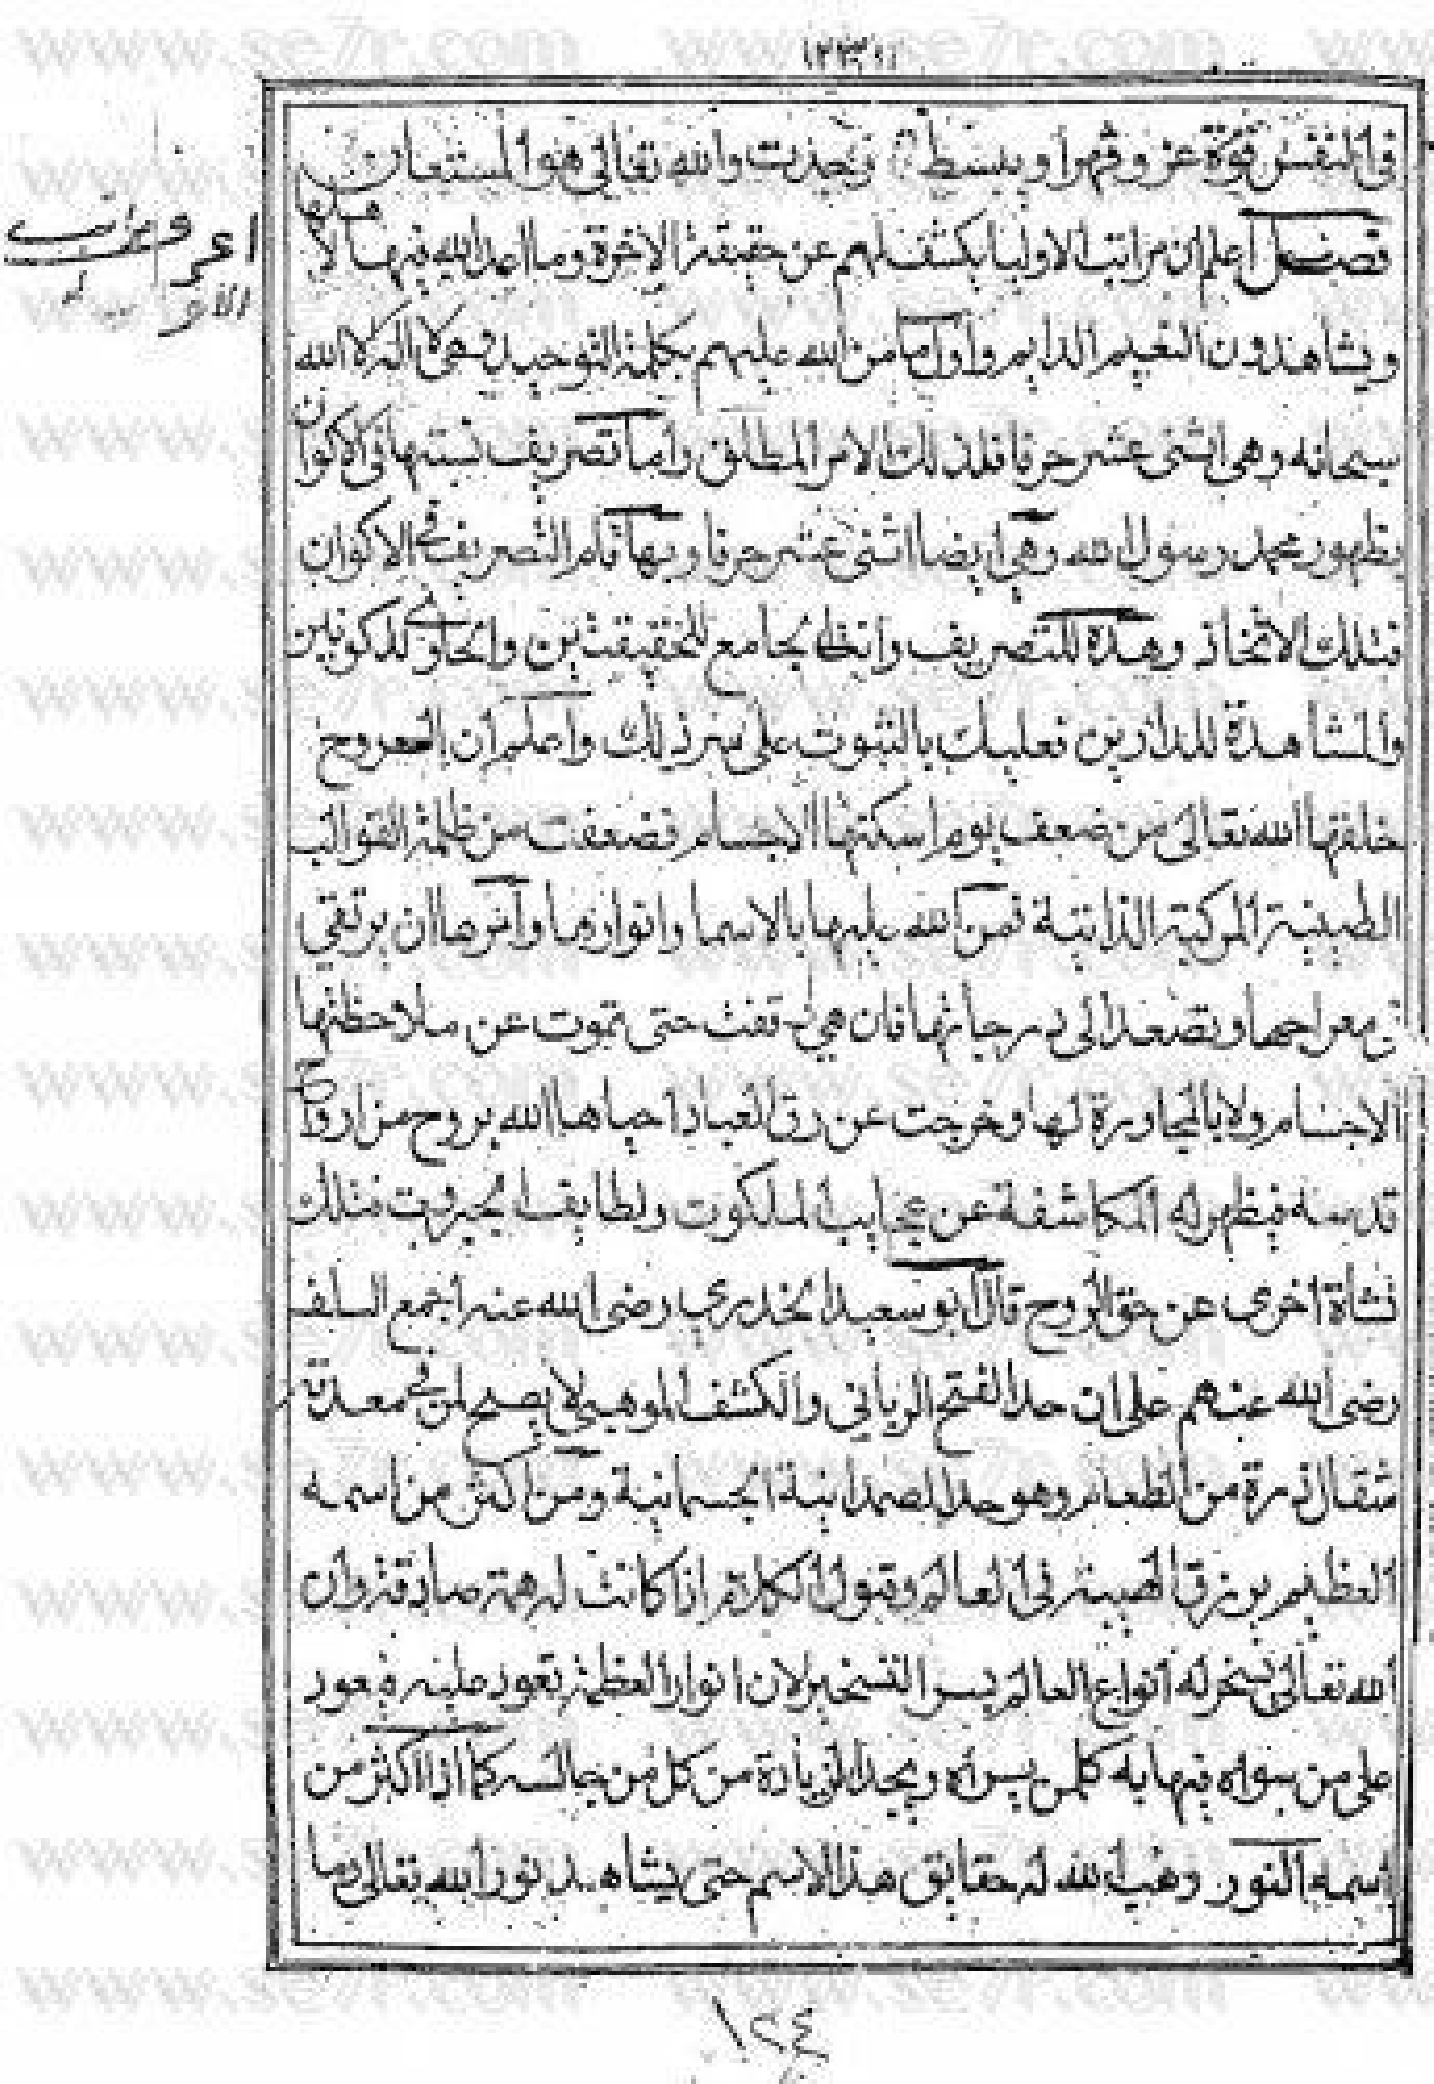 في النفس قوة عز وقهرا وبسط وبعدت والله تعالى هو المستعان
فصل اعلم ان مراتب الاوليا يكشف لهم عن حقيقة الاخرة وما اعد الله فيها لا
ويشاهدون النعيم الدايم واول ما من الله عليهم بكلمة التوحيد وهي لا اله الا الله
سبحانه وهي اثنى عشر حرفا فلذلك الامر المطلق واما تصريف نسبتها في الاكوان
بظهور محمد رسول الله وهي ايضا اثنى عشر حرفا وبها قام التصريف في الاكوان
فتلك الاتخاذ وهذة للتصريف وانظ لجامع الحقيقتين والحاوي للكونين
والمشاهدة للدارين فعليك بالثبوت على سر ذلك واعلم ان الروح
خلقها الله تعالى من ضعف يوم اسكنها الاجسام فضعفت من ظلمة القوالب
الطينية المركبة الذاتية فمن الله عليها بالاسما وانوارها وامرها ان يرتقي
في معراجها وتصعد الى درجاتها فان هي وقفت حتى تموت عن ملاحظتها
الاجسام ولا بالمجاورة لها وخرجت عن رق العباد احياها الله بروح من ارواح
قدسه فيظهر له المكاشفة عن عجايب الملكوت ولطايف الجبروت فتلك
نشاة اخرى عن حق الروح قال ابو سعيد الخدري رضى الله عنه اجمع السلف
رضى الله عنهم على ان حد الفتح الرباني والكشف الموهبي لا يصح لمن في معدته
مثقال ذرة من الطعام وهو حد الصمدانية الجسمانية ومن اكثر من اسمه
العظيم يرزق الهيبة في العالم وقبول الكلام اذا كانت له همة صادقة وان
الله تعالى يسخر له انواع العالم بسر التسخير لان انوار العظمة تعود عليه فيعود
على من سواه فيهابه كل من يراه ويجد الزيادة من كل من جالسه كما اذا اكثر من
اسمه النور وهب الله له حقايق هذا الاسم حتى يشاهد نور الله تعالى بما
١٢٤